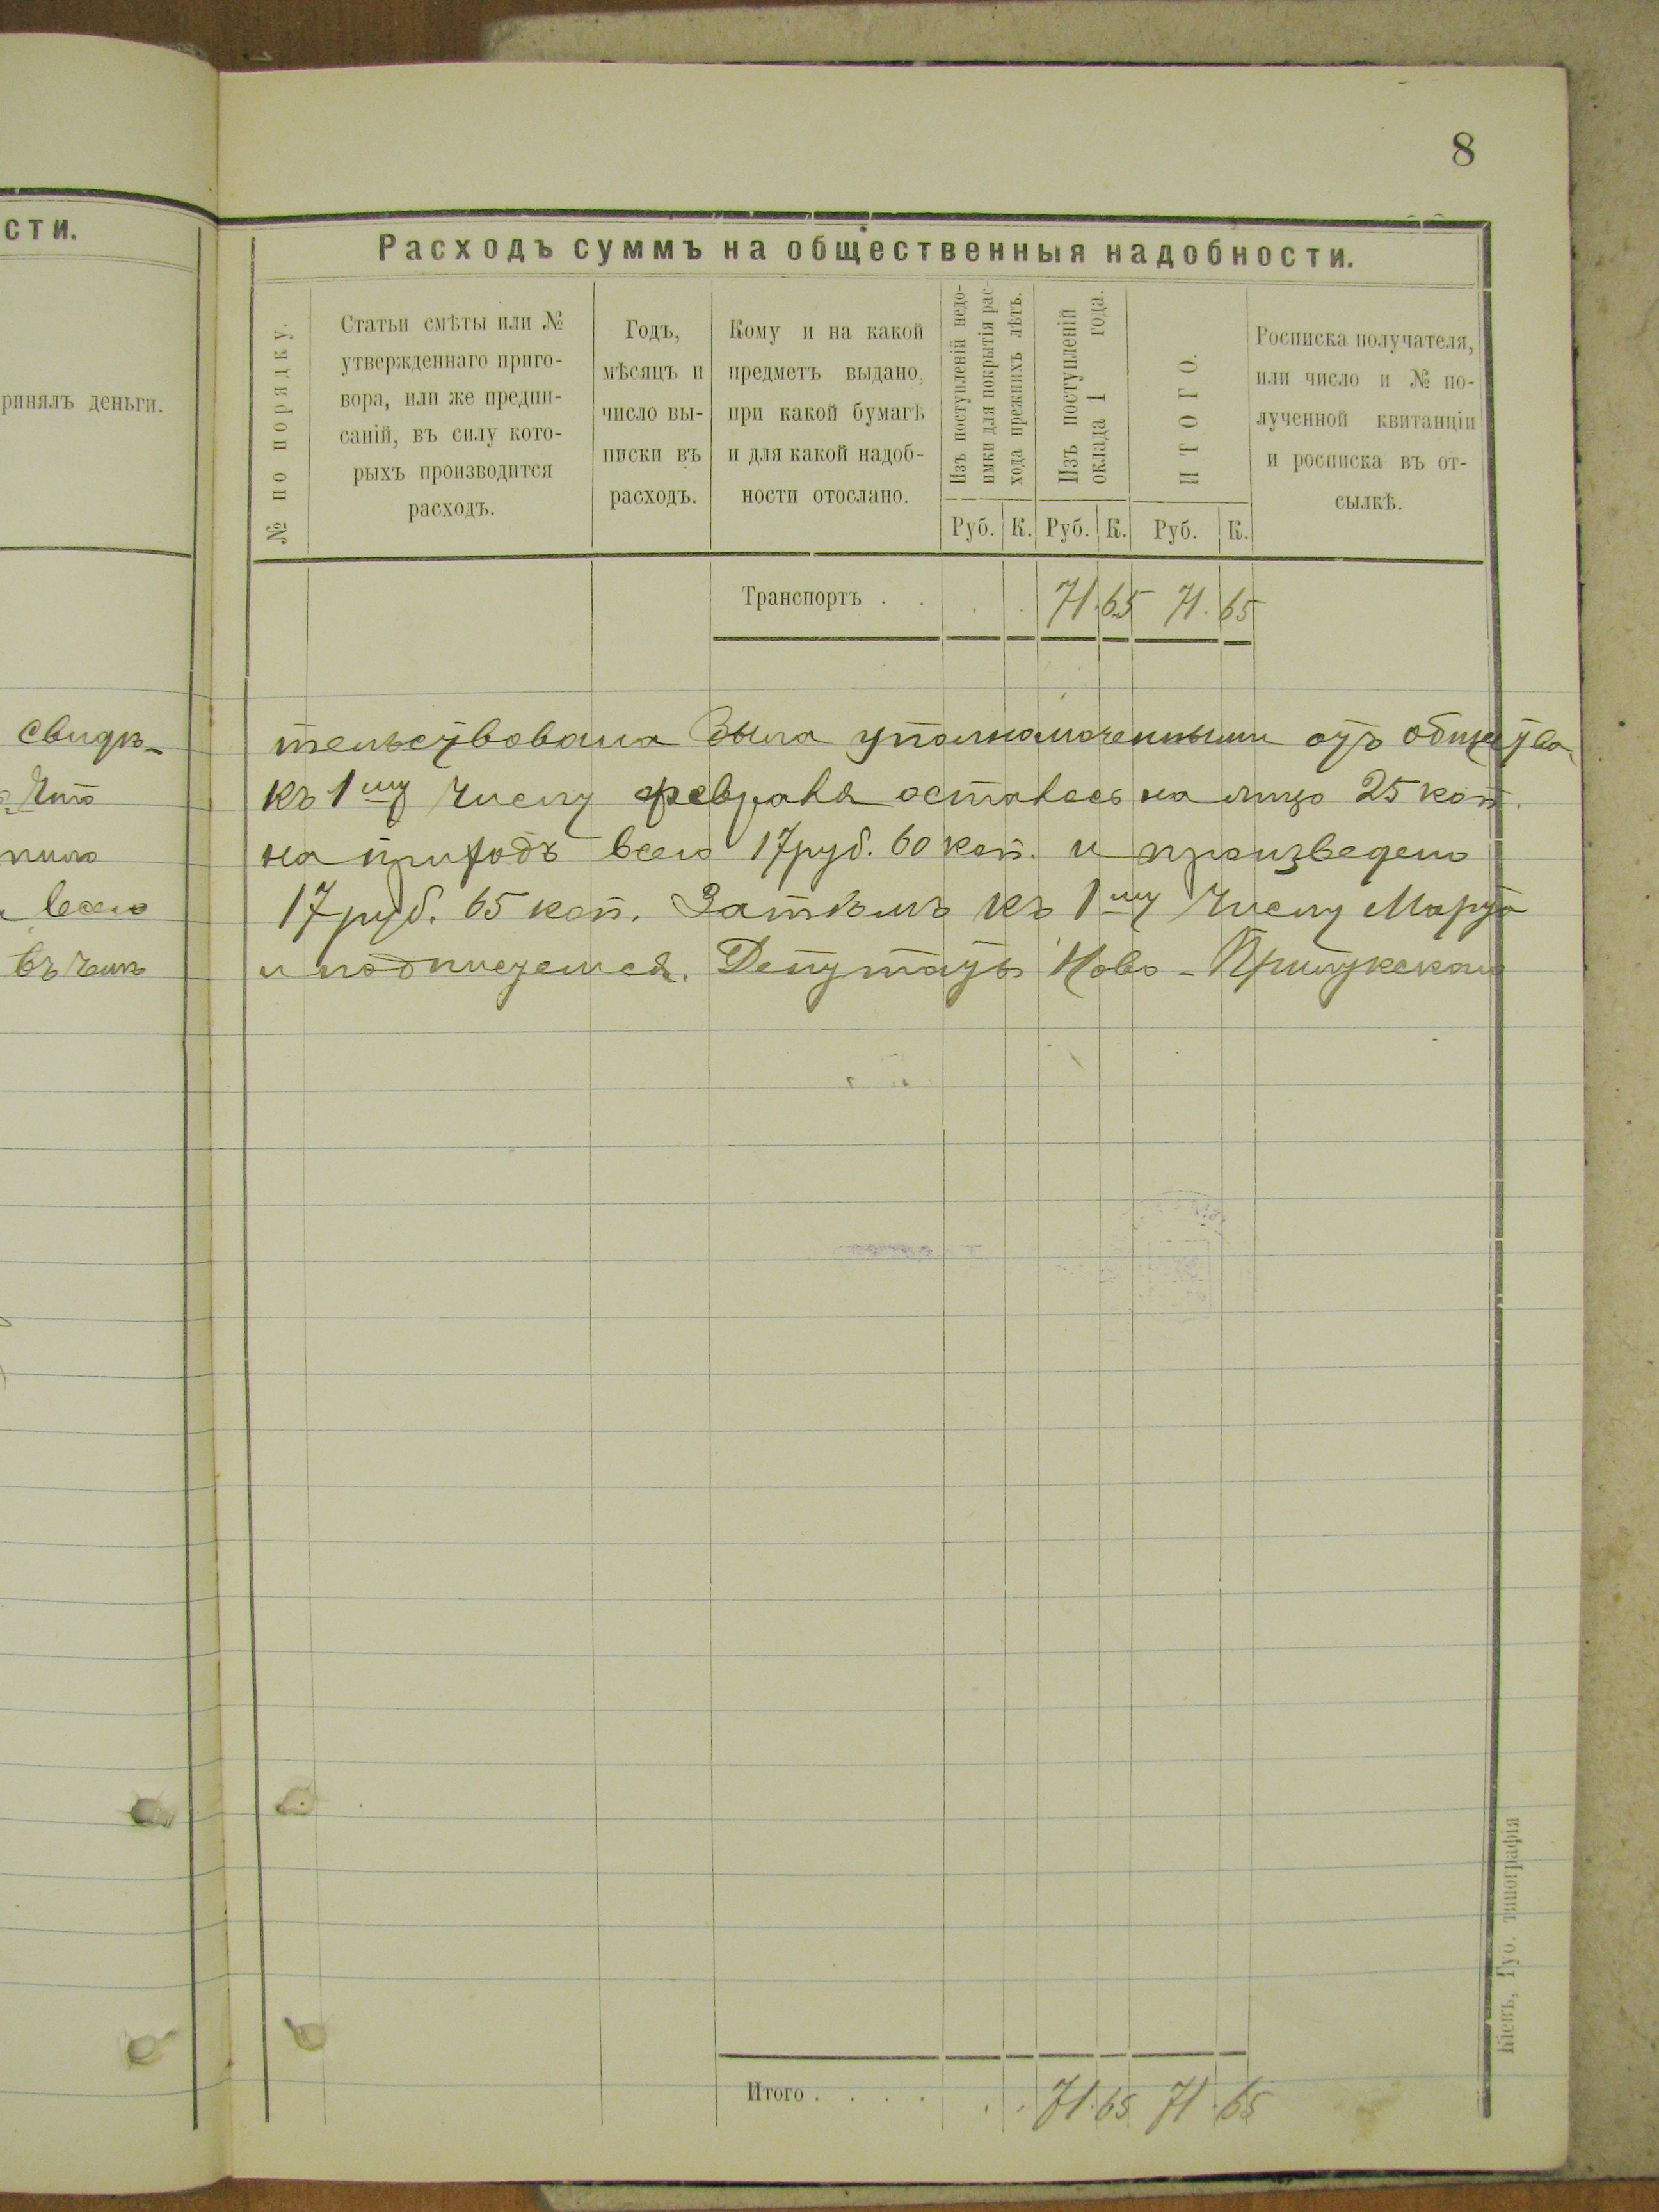 8
сти.
ринялъ деньги.
свидѣ-
Что
пило
всего
въ чемъ
Расходъ суммъ на общественныя надобности.
№ по порядку.
Статьи смѣты или №
утвержденнаго приго-
вора, или же предпи-
саній, въ силу кото-
рыхъ производится
расходъ.
Годъ,
мѣсяцъ и
число вы-
писки въ
расходъ.
Кому и на какой
предметъ выдано,
при какой бумагѣ
и для какой надоб-
ности отослано.
Изъ поступленій недо-
имки для покрытія рас-
хода прежнихъ лѣтъ.
Изъ поступленій
оклада 1 года.
ИТОГО.
Росписка получателя,
или число и № по-
лученной квитанціи
и росписка въ от-
сылкѣ.
Руб. К. Руб. К. Руб. К.
Транспортъ . . . . 71.65 71.65
тельствована была уполномоченными отъ общества,
къ 1му числу февраля осталось на лицо 25 коп.
на приходъ всего 17 руб. 60 коп. и произведено
17 руб. 65 коп. Затѣмъ къ 1му числу Марта
и подписуемся. Депутатъ Ново-Прилукскаго
Итого . . . . . . 71.65 71.65
Кіевъ, Губ. типографія